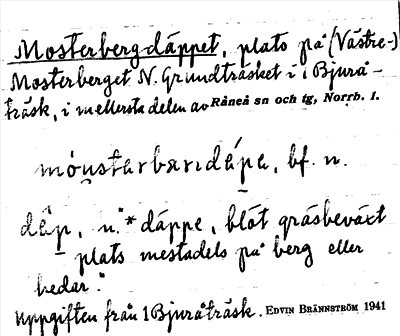 Mosterbergdäppet, plats på (Västre-)
Mosterberget N. Grundträsket i 1 Bjurå-
träsk, i mellersta delen av Råneå sn och tg, Norrb. l.
bf. n.
däp, n. "* däppe, blöt gräsbeväxt
plats mestadels på berg eller
hedar."
Uppgiften från 1 Bjuråträsk. EDVIN BRÄNNSTRÖM 1941